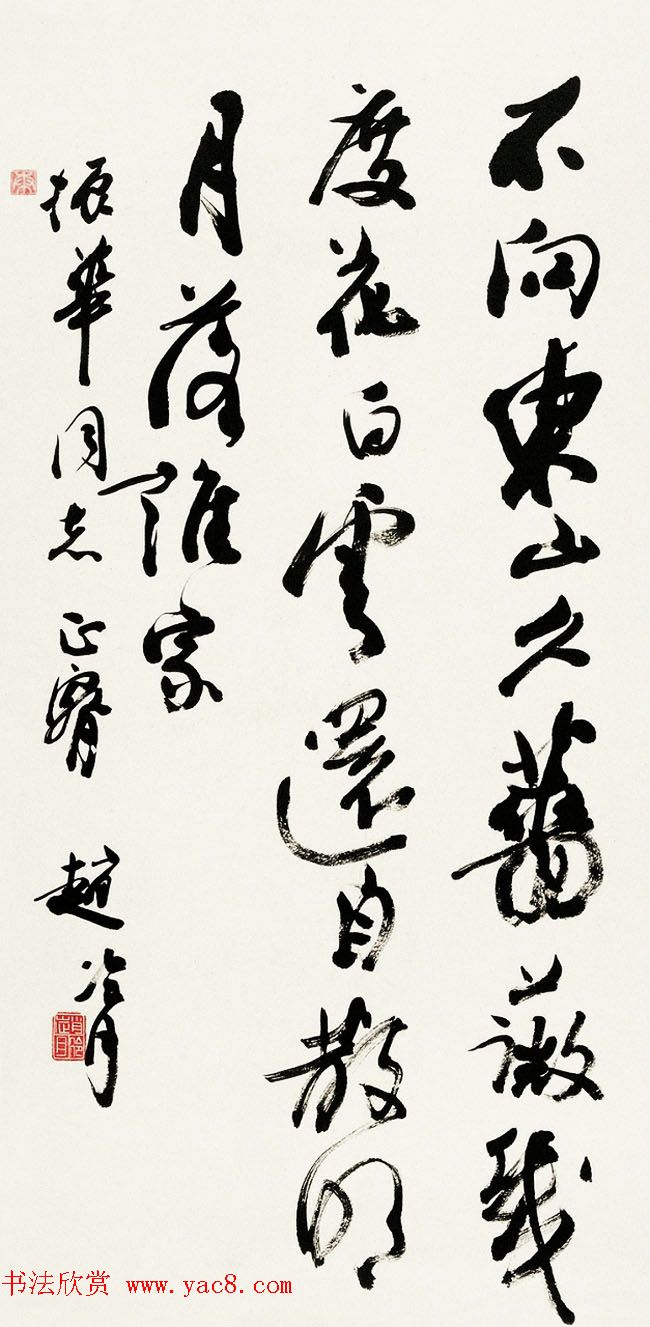 不向東山久薔薇幾
度花白雲還自散明
月落誰家
振華同志正 趙冷月
书法欣赏 www.yac8.com